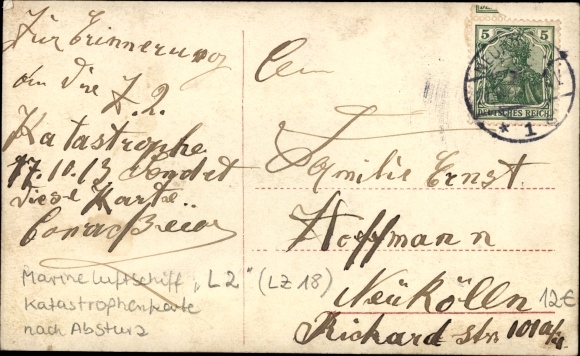 Zur Erinnerung
an die L.2.
Katastrophe
17.10.13 sendet
diese Karte
Conrad
An
Familie Ernst
Hoffmann
Neukölln
Richard str 101
Marine Luftschiff "L2" (LZ 18)
Katastrophenkarte
nach Absturz
12€
5
DEUTSCHES REICH
* 1